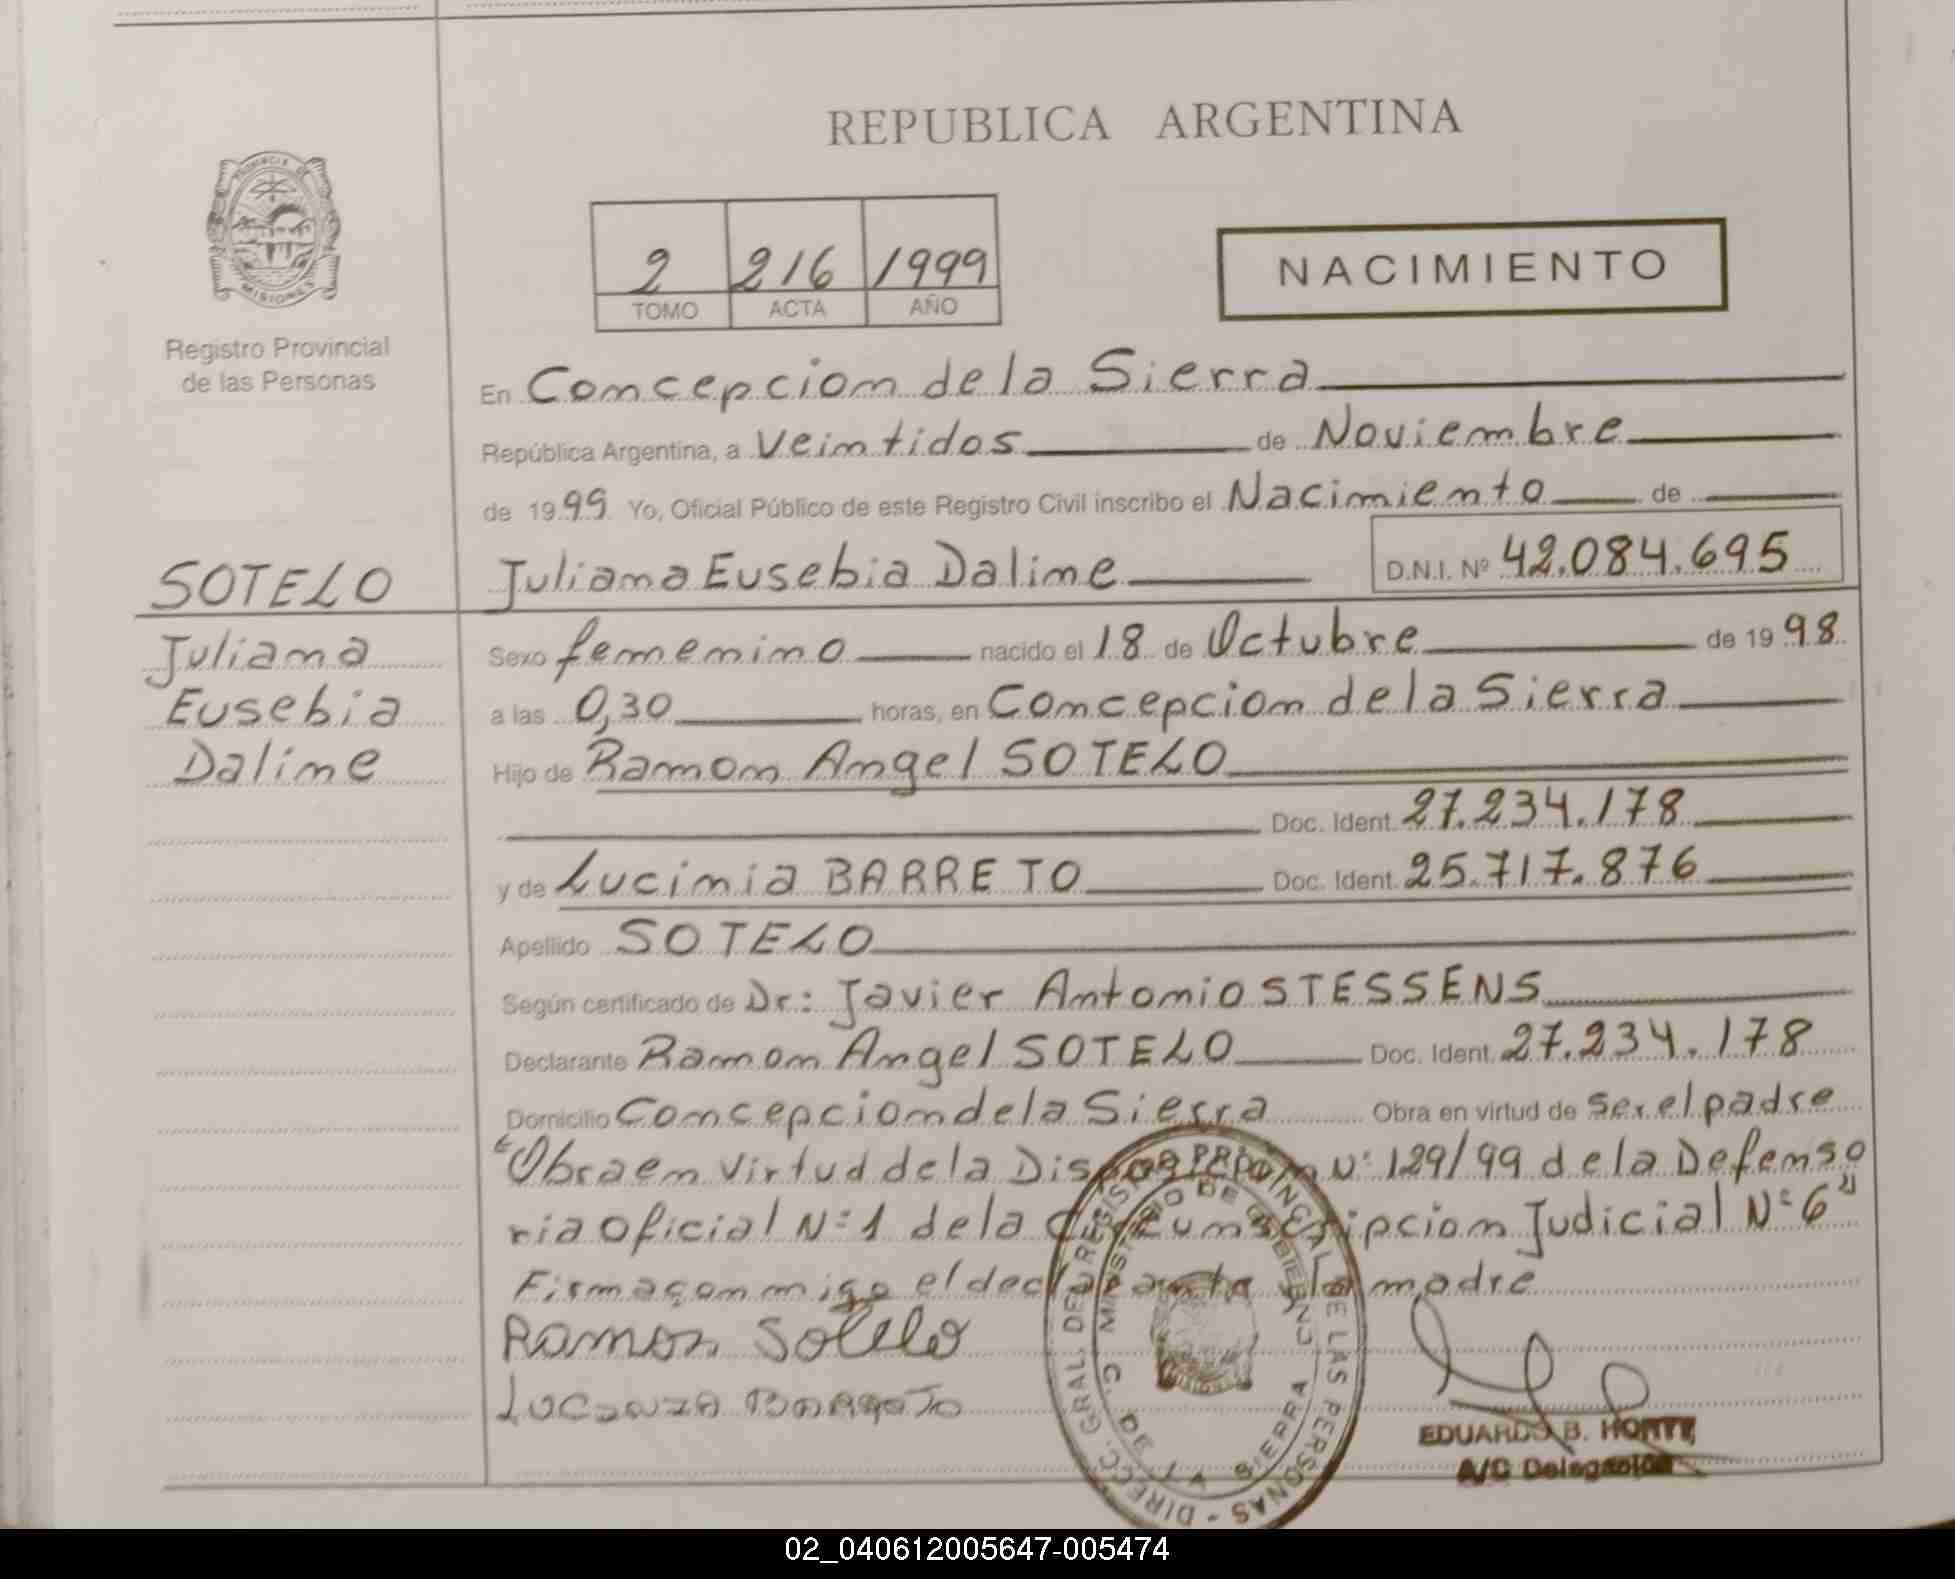 REPUBLICA ARGENTINA
PROVINCIA DE
MISIONES
Registro Provincial
de las Personas
2 216 1999
TOMO ACTA AÑO
NACIMIENTO
En Concepcion de la Sierra
República Argentina, a Veintidos de Noviembre
de 1999 Yo, Oficial Público de este Registro Civil inscribo el Nacimiento de
SOTELO Juliana Eusebia Daline D.N.I. Nº 42.084.695
Juliana Sexo femenino nacido el 18 de Octubre de 1998
Eusebia a las 0,30 horas, en Concepcion de la Sierra
Daline Hijo de Ramon Angel SOTELO
Doc. Ident. 27.234.178
y de Lucinia BARRETO Doc. Ident. 25.717.876
Apellido SOTELO
Según certificado de Dr: Javier Antonio STESSENS
Declarante Ramon Angel SOTELO Doc. Ident. 27.234.178
Domicilio Concepcion de la Sierra Obra en virtud de ser el padre
"Obra en virtud de la Disposicion Nº 129/99 de la Defenso
ria Oficial Nº 1 de la Circunscripcion Judicial Nº 6"
Firma conmigo el declarante y la madre
Ramon Sotelo
DIRECC. GRAL. DEL REGISTRO PROVINCIAL DE LAS PERSONAS
MINISTERIO DE GOBIERNO
C. DE LA SIERRA
EDUARDO B.
A/C Delegación
02_040612005647-005474